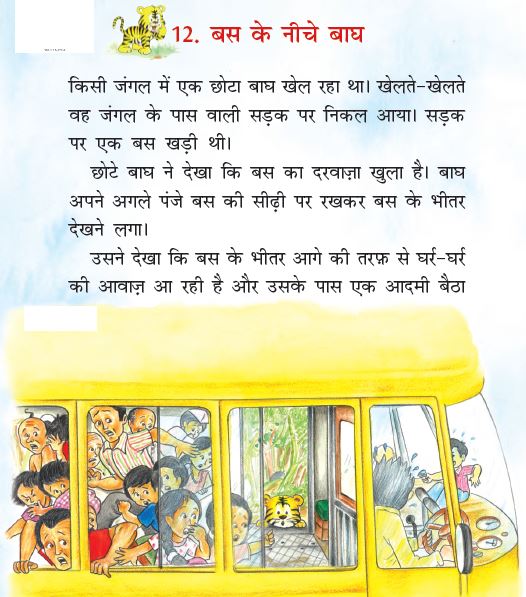 12. बस के नीचे बाघ
किसी जंगल में एक छोटा बाघ खेल रहा था। खेलते-खेलते
वह जंगल के पास वाली सड़क पर निकल आया। सड़क
पर एक बस खड़ी थी।
छोटे बाघ ने देखा कि बस का दरवाज़ा खुला है। बाघ
अपने अगले पंजे बस की सीढ़ी पर रखकर बस के भीतर
देखने लगा।
उसने देखा कि बस के भीतर आगे की तरफ़ से घर्र-घर्र
की आवाज़ आ रही है और उसके पास एक आदमी बैठा